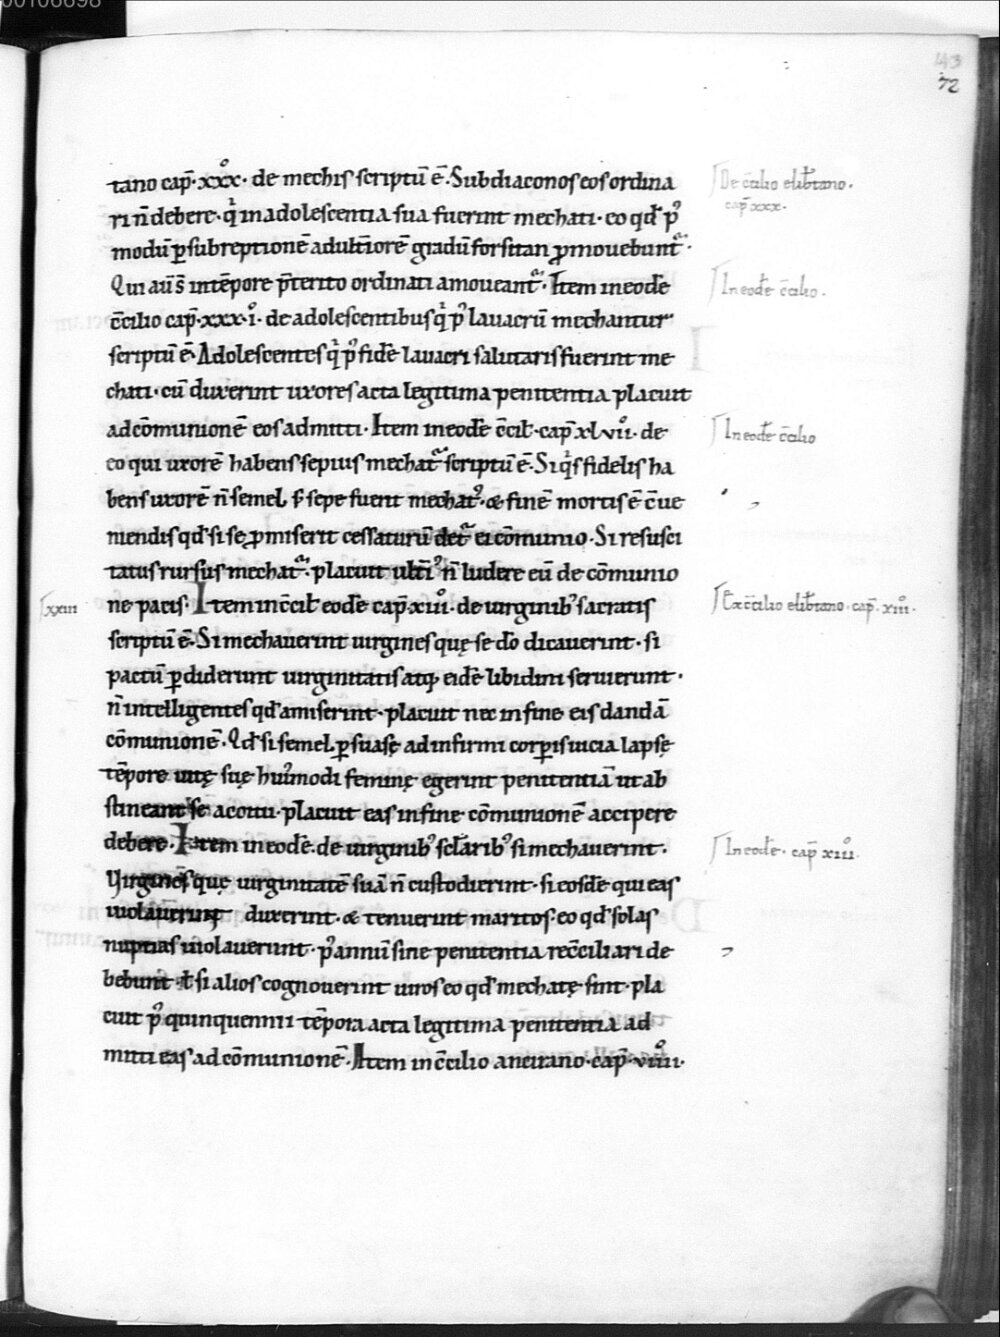 43
72
tano cap̄·xxx͛· de mechis scriptū ē. Subdiaconos eos ordina
ri n̄ debere· q̇ in adolescentia sua fuerint mechati· eo qd̄ ꝑ
modū ꝑ subreptionē ad ulti͛orē gradū forsitan ꝓmouebunt᷑·
Qui aū s̄ in tēpore p̄terito ordinati amoueant᷑. Item in eodē
c̄cilio cap̄·xxx·i͛· de adolescentibus q̇ p᷒ lauacrū mechantur
scriptū ē. Adolescentes q̇ p᷒ fidē lauacri salutaris fuerint me
chati· cū duxerint uxores acta legitima penitentia placuit
ad cōmunionē eos admitti. Item in eodē c̄cil̄· cap̄ xlvii͛· de
eo qui uxorē habens sepius mechat᷑ scriptū ē. Si q̇s fidelis ha
bens uxorē n̄ semel s̄ sepe fuerit mechat᷒· & finē mortis ē c̄ue
niendis qd̄ si se ꝓmiserit cessaturū det᷑ ei cōmunio. Si resusci
tatus rursus mechat᷑· placuit ulti͛᷒ n̄ ludere eū de cōmunio
ne pacis. Item in c̄cil̄ eodē cap̄ xiii͛· de uirginib᷒ sacratis
scriptū ē. Si mechauerint uirgines quę se dō dicauerint· si
pactū ꝑdiderunt uirginitatis atq; eidē libidini seruierunt·
n̄ intelligentes qd̄ amiserint· placuit nec in fine eis dandā
cōmunionē. Qd̄ si semel ꝑsuasę ad infirmi corꝑis uicia lapsę
tēpore uitę suę hui᷒modi feminę egerint penitentiā ut ab
stineant se a coitu· placuit eas in fine cōmunionē accipere
debere. Item in eodē. de uirginib᷒ scl̄arib᷒ si mechauerint.
Uirgines quę uirginitatē suā n̄ custodierint· si eosdē qui eas
uiolauerunt duxerint· & tenuerint maritos· eo qd̄ solas
nuptias uiolauerunt· p᷒ annū sine penitentia rec̄ciliari de
bebunt· ł si alios cognouerint uiros eo qd̄ mechatę sint· pla
cuit p᷒ quinquennii tēpora acta legitima penitentia ad
mitti eas ad cōmunionē. Item in c̄cilio ancirano· cap̄·viiii͛·
De c̄cilio elib̄tano.
cap̄ xxx.
In eod̄ c̄cilio.
In eod̄ c̄cilio
xxiii
Ex c̄cilio elib̄tano· cap̄. xiii͛.
In eodē. cap̄ xiiii͛.